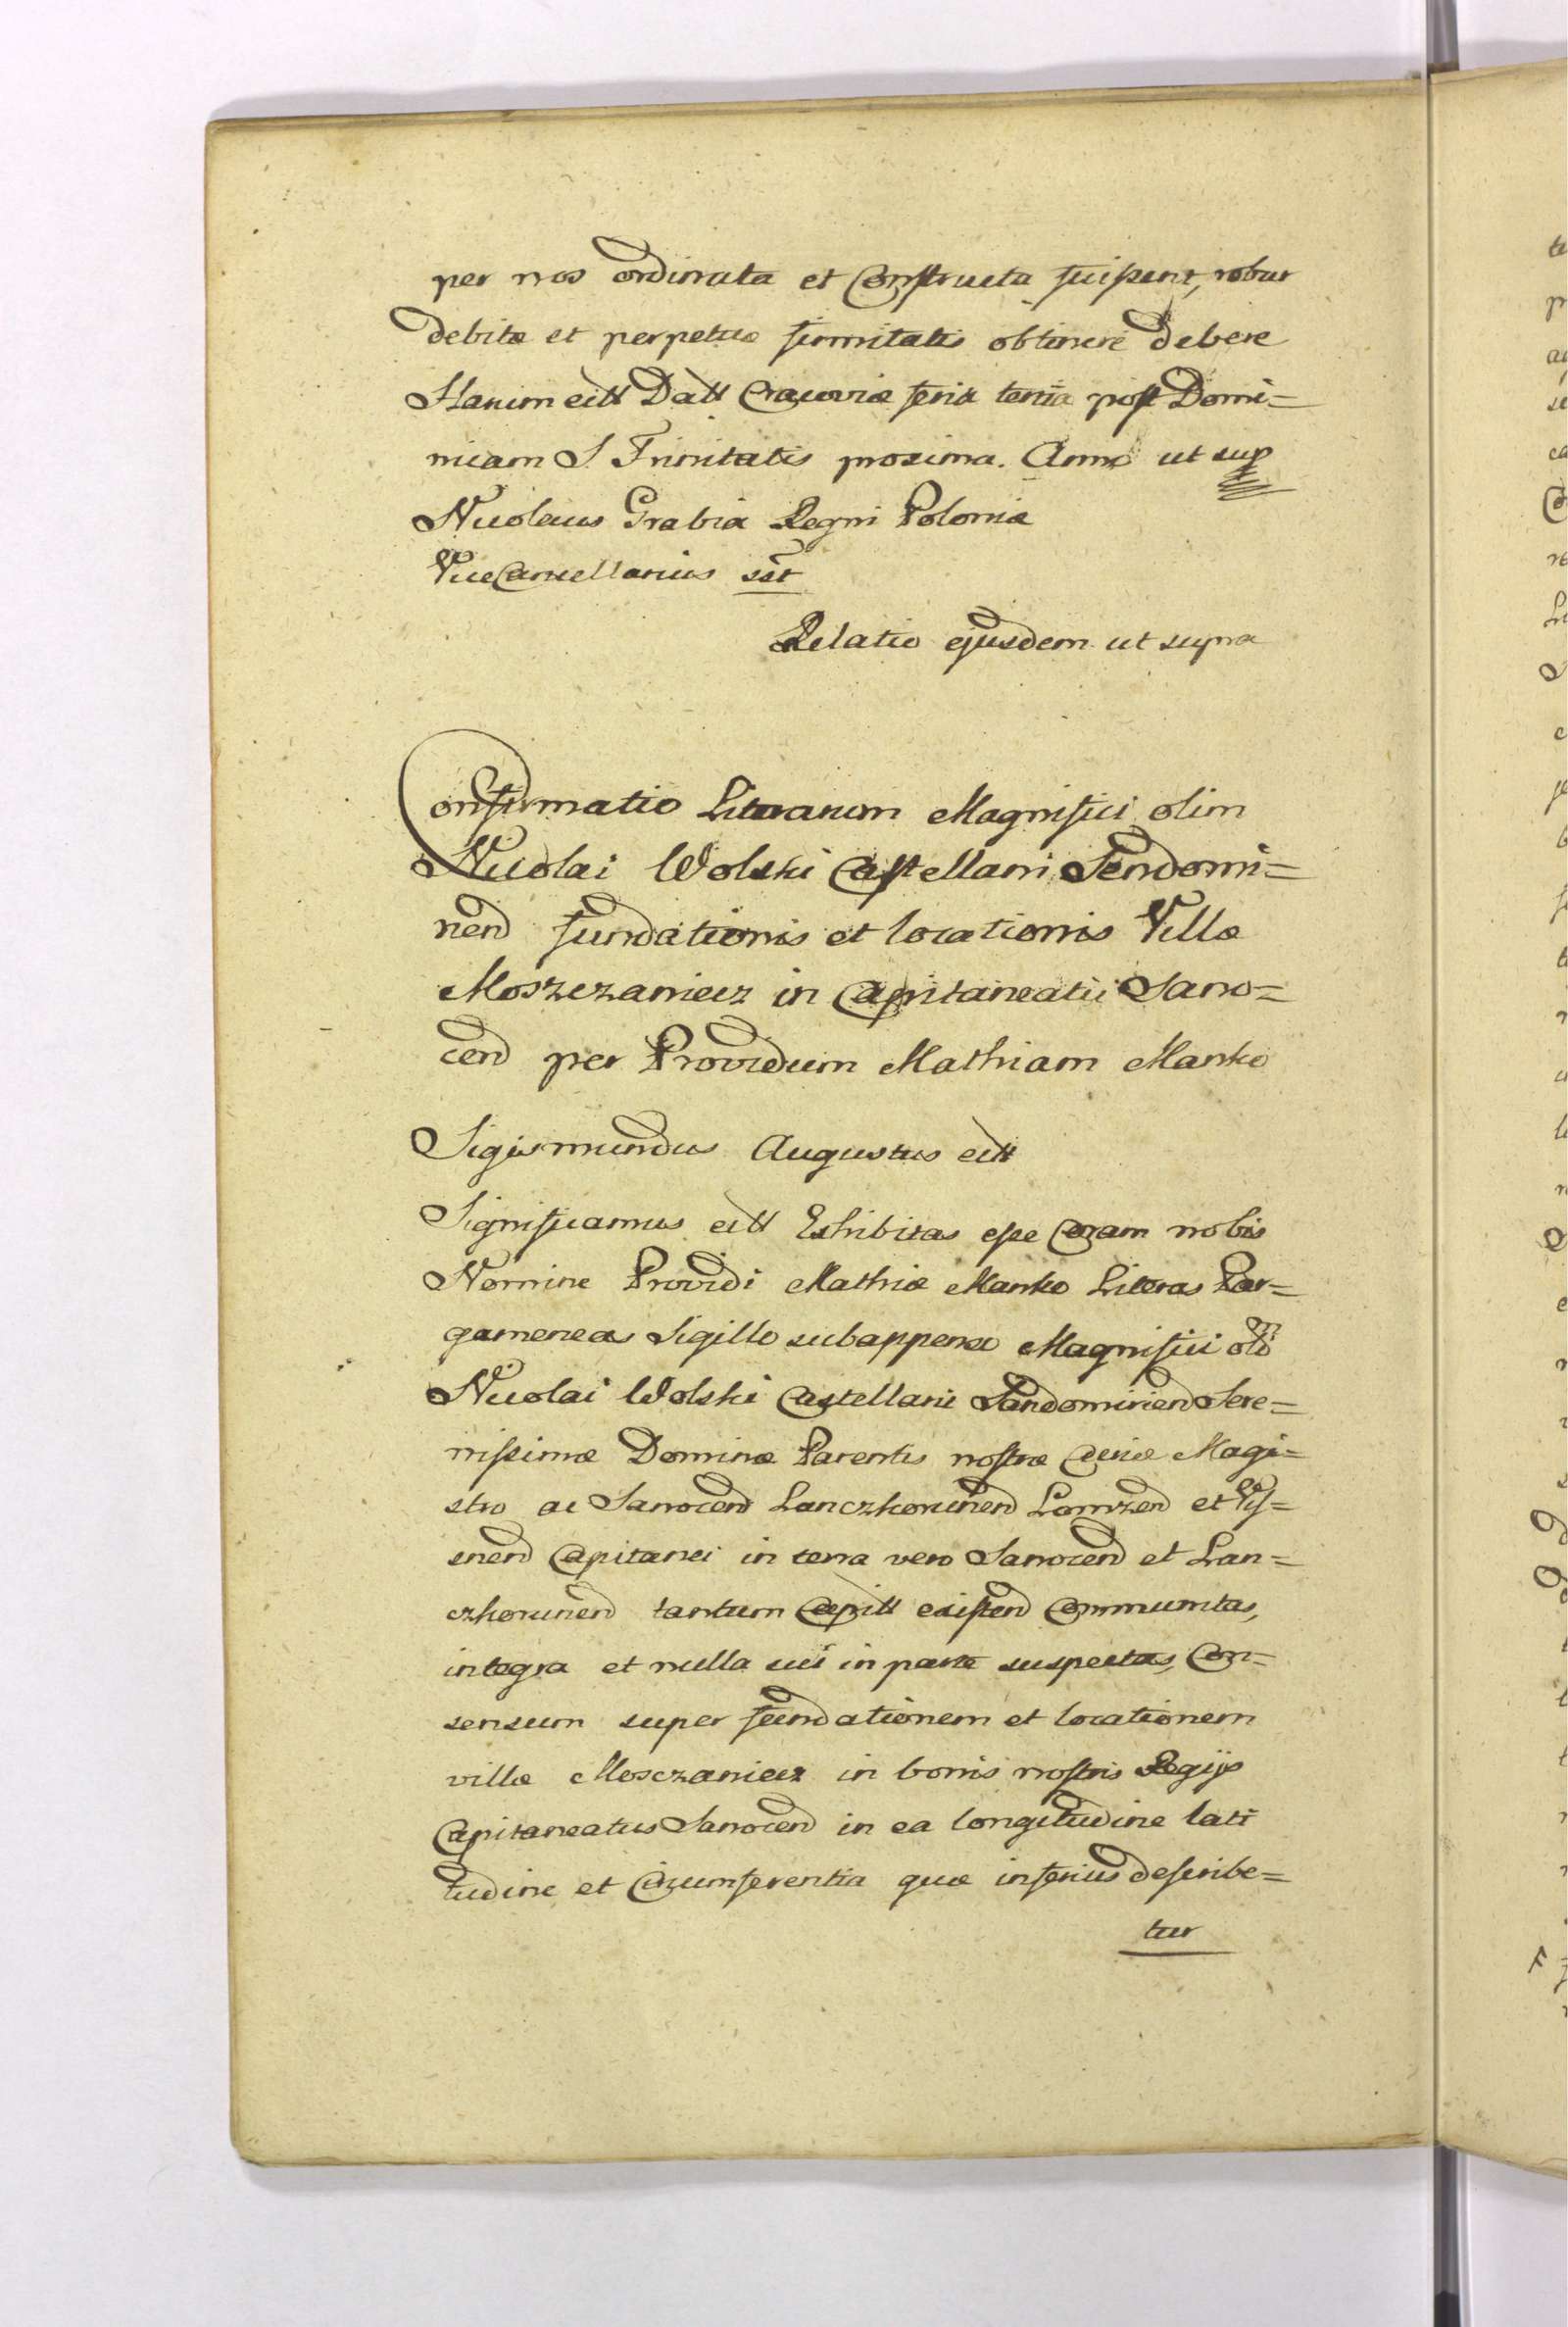 per nos ordinata et Constructa fuissent, robur
debitæ et perpetuæ firmitatis obtinere debere
Harum ettt Datt Cracoviæ feria tertia post Domi=
nicam S. Trinitatis proxima. Anno ut sup
Nicolaus Grabia Regni Poloniæ
ViceCancellarius sst
Relatio ejusdem ut supra
Confirmatio Literarum Magnifici olim
Nicolai Wolski Castellani Sendomi=
rien fundationis et locationis Villæ
Moszczaniecz in Capitaneatu Sano=
cen per Providum Mathiam Manko
Sigismundus Augustus ettt
Significamus ettt Exhibitas esse Coram nobis
Nomine Providi Mathiæ Manko Literas Par=
gameneas Sigillo subappenso Magnifici olim
Nicolai Wolski Castellani Sandomirien Sere=
nissimæ Dominæ Parentis nostræ Curiæ Magi=
stro ac Sanocen Lanczkorunen Lomzen et Vis=
nen Capitanei in terra vero Sanocen et Lan=
czkorunen tantum Capitt existen Communitas,
integra et nulla sui in parte suspectas, Con=
sensum super fundationem et locationem
villæ Mosczaniecz in bonis nostris Regijs
Capitaneatus Sanocen in ea longitudine lati
tudine et Circumferentia quæ inferius describe=
tur